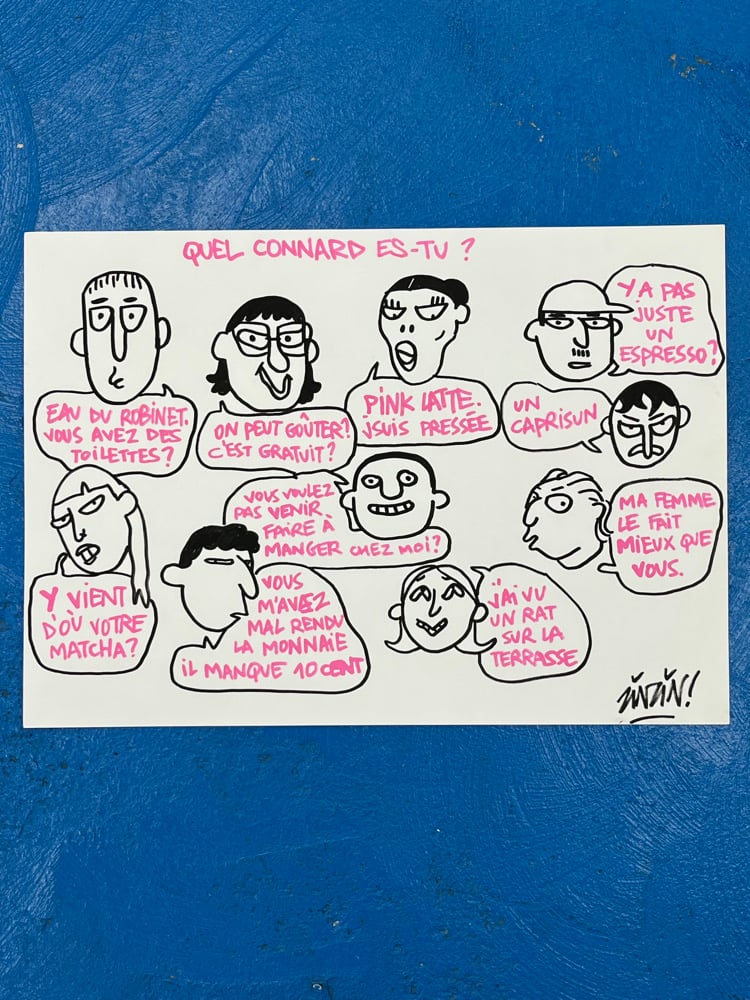 QUEL CONNARD ES-TU ?
EAU DU ROBINET.
VOUS AVEZ DES
TOILETTES ?
ON PEUT GOÛTER ?
C'EST GRATUIT ?
PINK LATTE.
JSUIS PRESSÉE
Y A PAS
JUSTE
UN
ESPRESSO ?
UN
CAPRISUN
VOUS VOULEZ
PAS VENIR
FAIRE À
MANGER CHEZ MOI ?
MA FEMME
LE FAIT
MIEUX QUE
VOUS.
Y VIENT
D'OÙ VOTRE
MATCHA ?
VOUS
M'AVEZ
MAL RENDU
LA MONNAIE
IL MANQUE 10 CENT
J'AI VU
UN RAT
SUR LA
TERRASSE
ZINZIN!